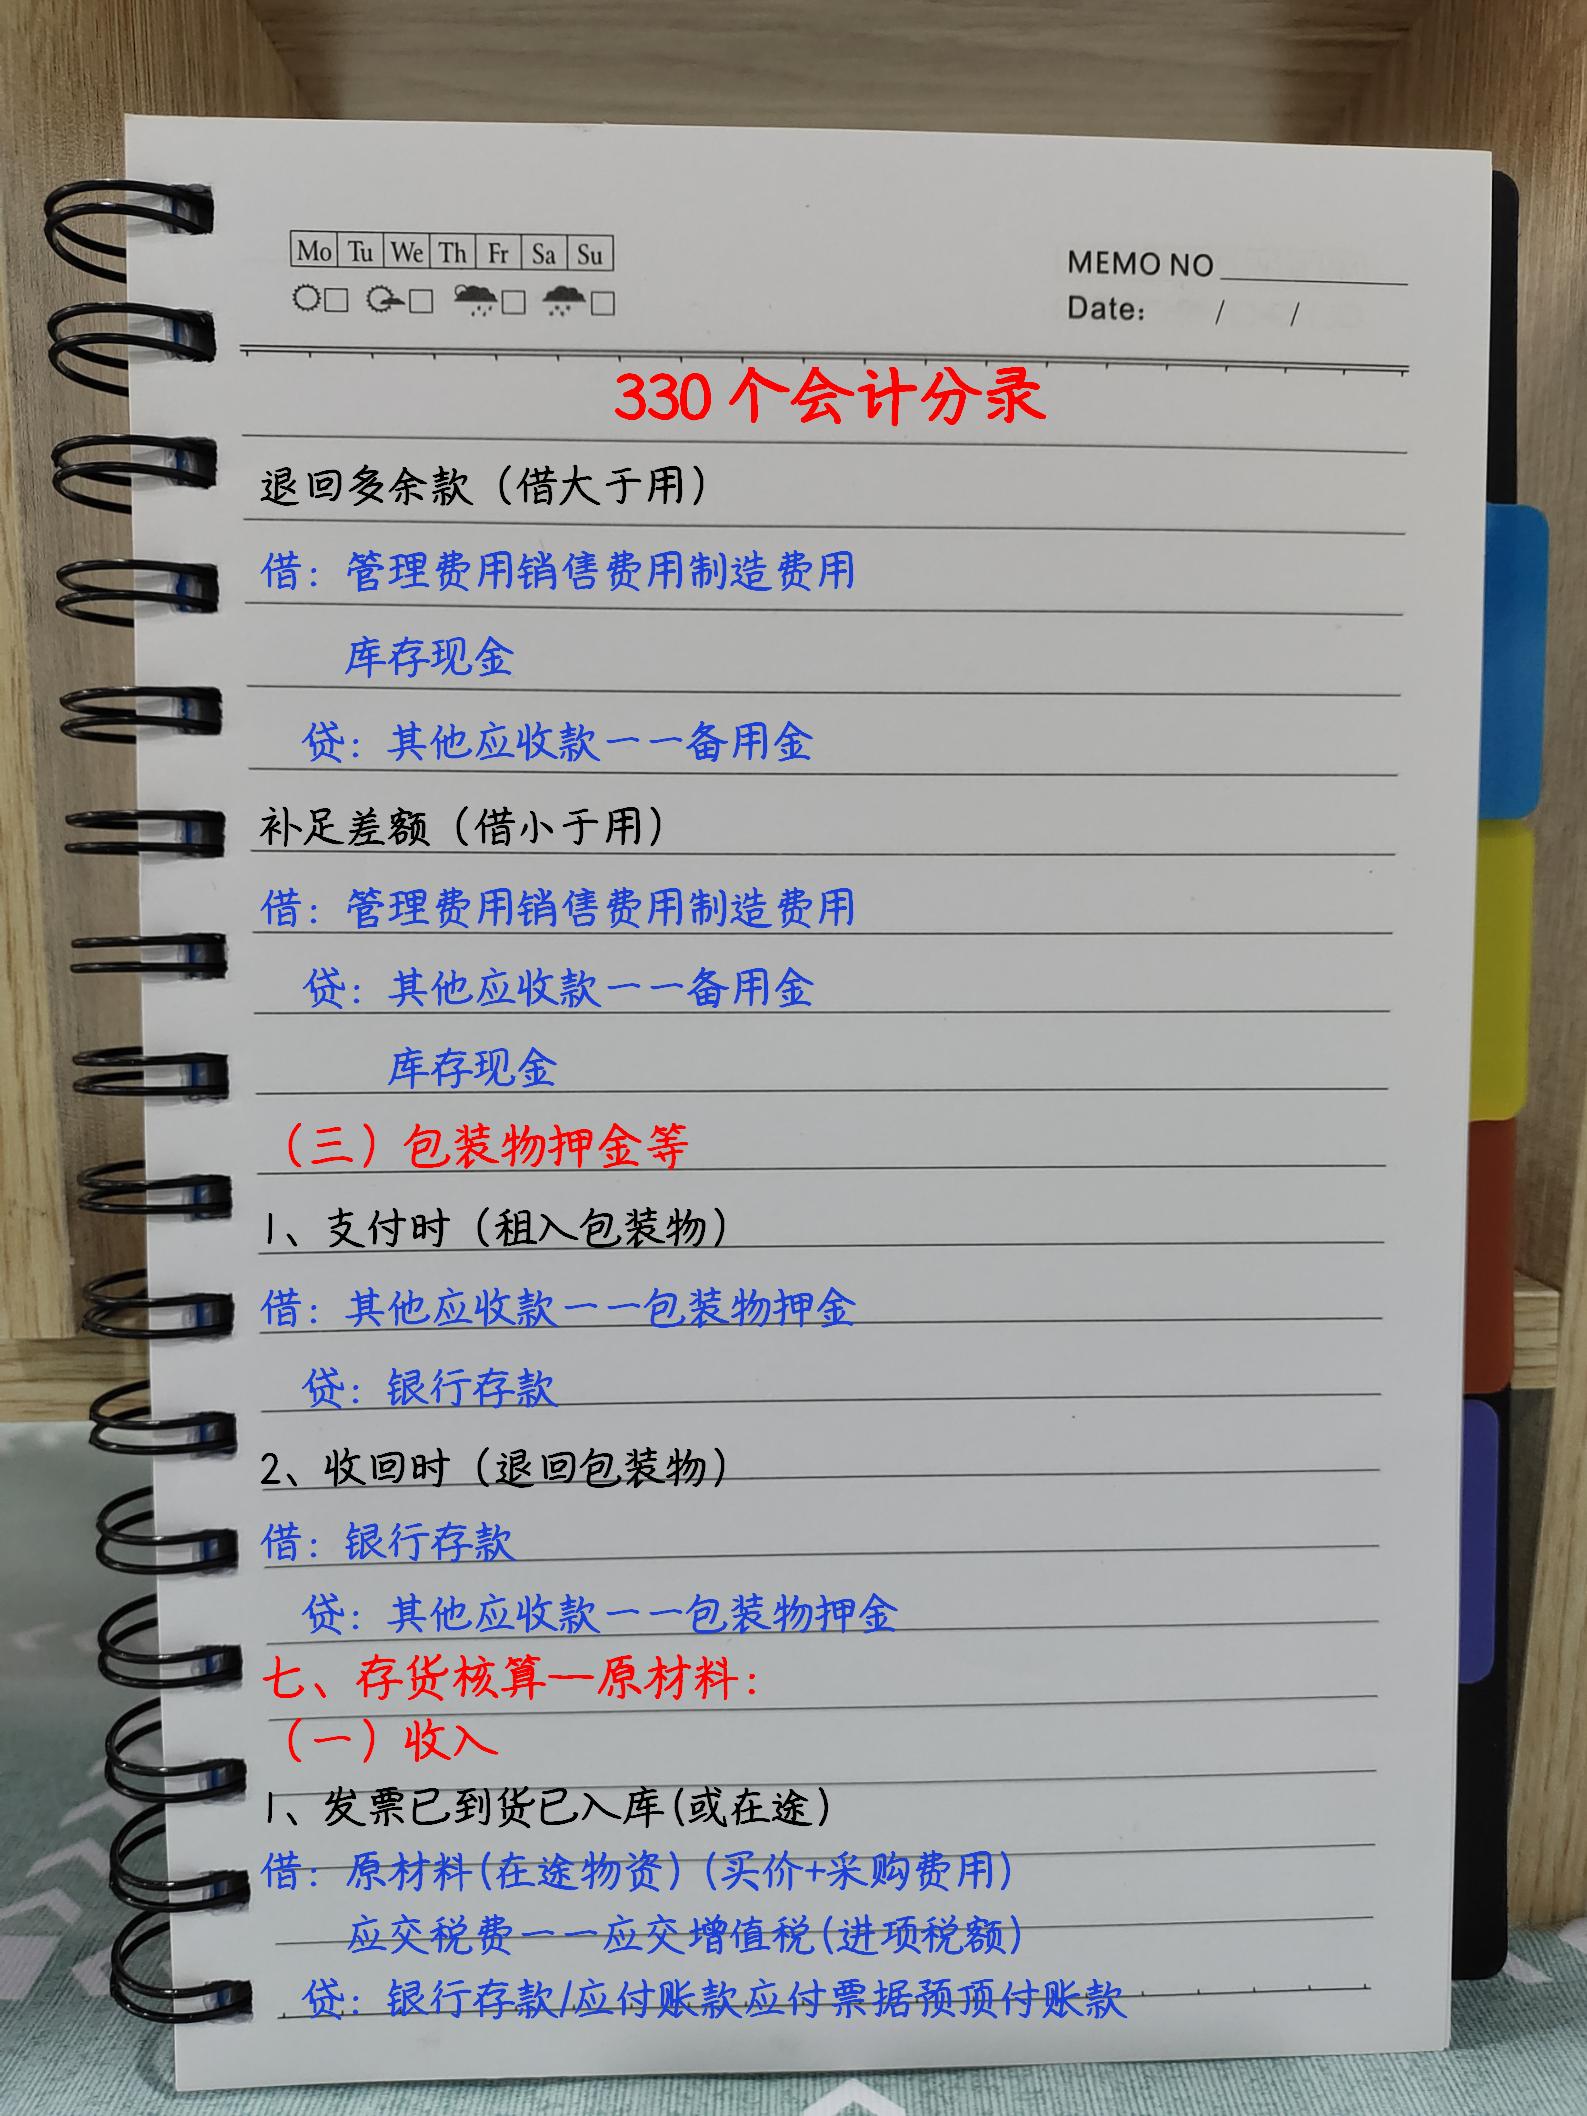 Mo Tu We Th Fr Sa Su
MEMO NO
Date: / /
330个会计分录
退回多余款（借大于用）
借：管理费用销售费用制造费用
库存现金
贷：其他应收款一一备用金
补足差额（借小于用）
借：管理费用销售费用制造费用
贷：其他应收款一一备用金
库存现金
（三）包装物押金等
1、支付时（租入包装物）
借：其他应收款一一包装物押金
贷：银行存款
2、收回时（退回包装物）
借：银行存款
贷：其他应收款一一包装物押金
七、存货核算—原材料：
（一）收入
1、发票已到货已入库(或在途)
借：原材料(在途物资)(买价+采购费用)
应交税费一一应交增值税(进项税额)
贷：银行存款/应付账款应付票据预顶付账款